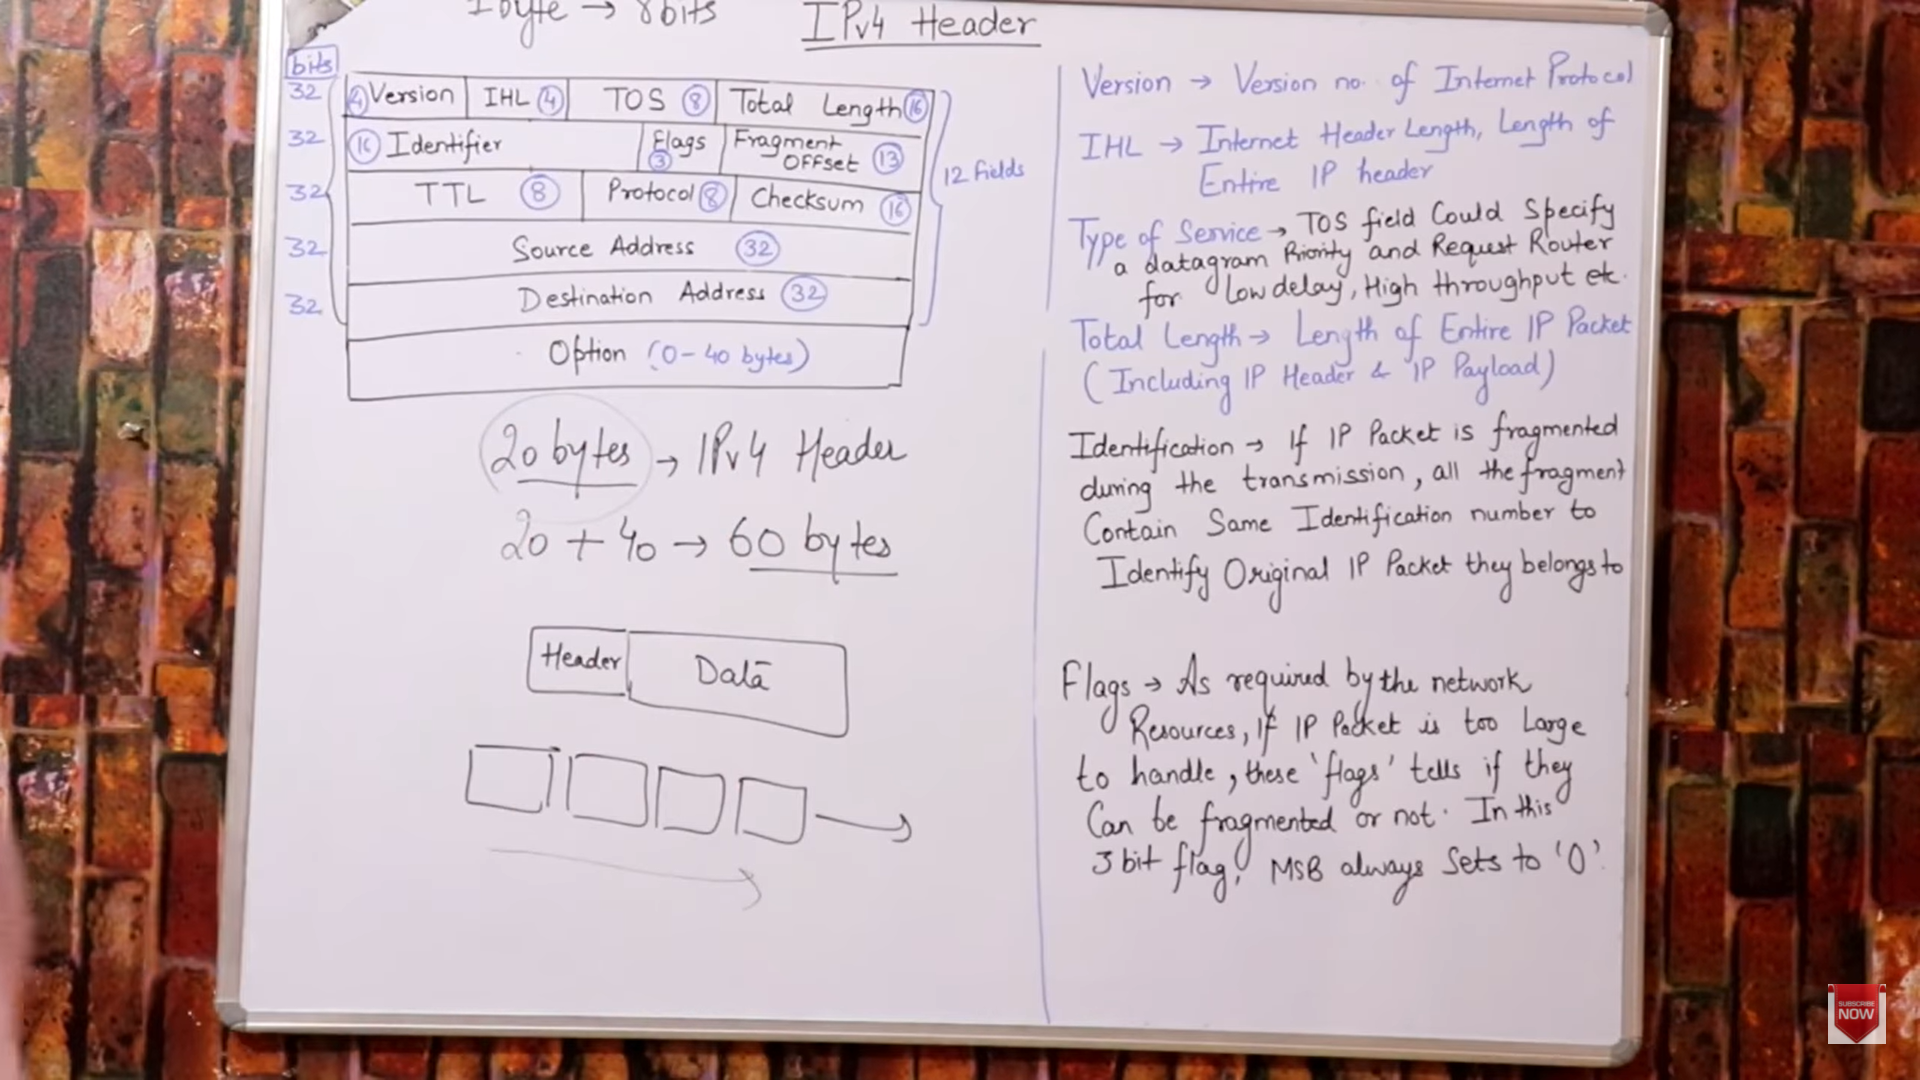 1 byte → 8 bits
IPv4 Header
bits
32 4 Version IHL 4 TOS 8 Total Length 16
32 16 Identifier Flags 3 Fragment OFFset 13
32 TTL 8 Protocol 8 Checksum 16
32 Source Address 32
32 Destination Address 32
Option (0-40 bytes)
12 fields
20 bytes → IPv4 Header
20 + 40 → 60 bytes
Header Data
Version → Version no. of Internet Protocol
IHL → Internet Header Length, Length of
Entire IP header
Type of Service → TOS field Could Specify
a datagram Priority and Request Router
for Low delay, High throughput etc.
Total Length → Length of Entire IP Packet
(Including IP Header & IP Payload)
Identification → If IP Packet is fragmented
during the transmission, all the fragment
Contain Same Identification number to
Identify Original IP Packet they belongs to
Flags → As required by the network
Resources, If IP Packet is too Large
to handle, these 'flags' tells if they
Can be fragmented or not. In this
3 bit flag, MSB always Sets to '0'.
SUBSCRIBE
NOW